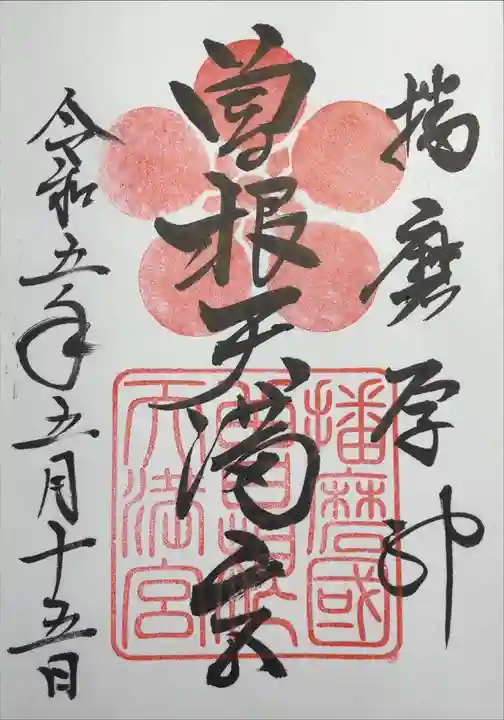 播磨学神
曽根天満宮
令和五年五月十五日
播磨國
曽根
天満宮